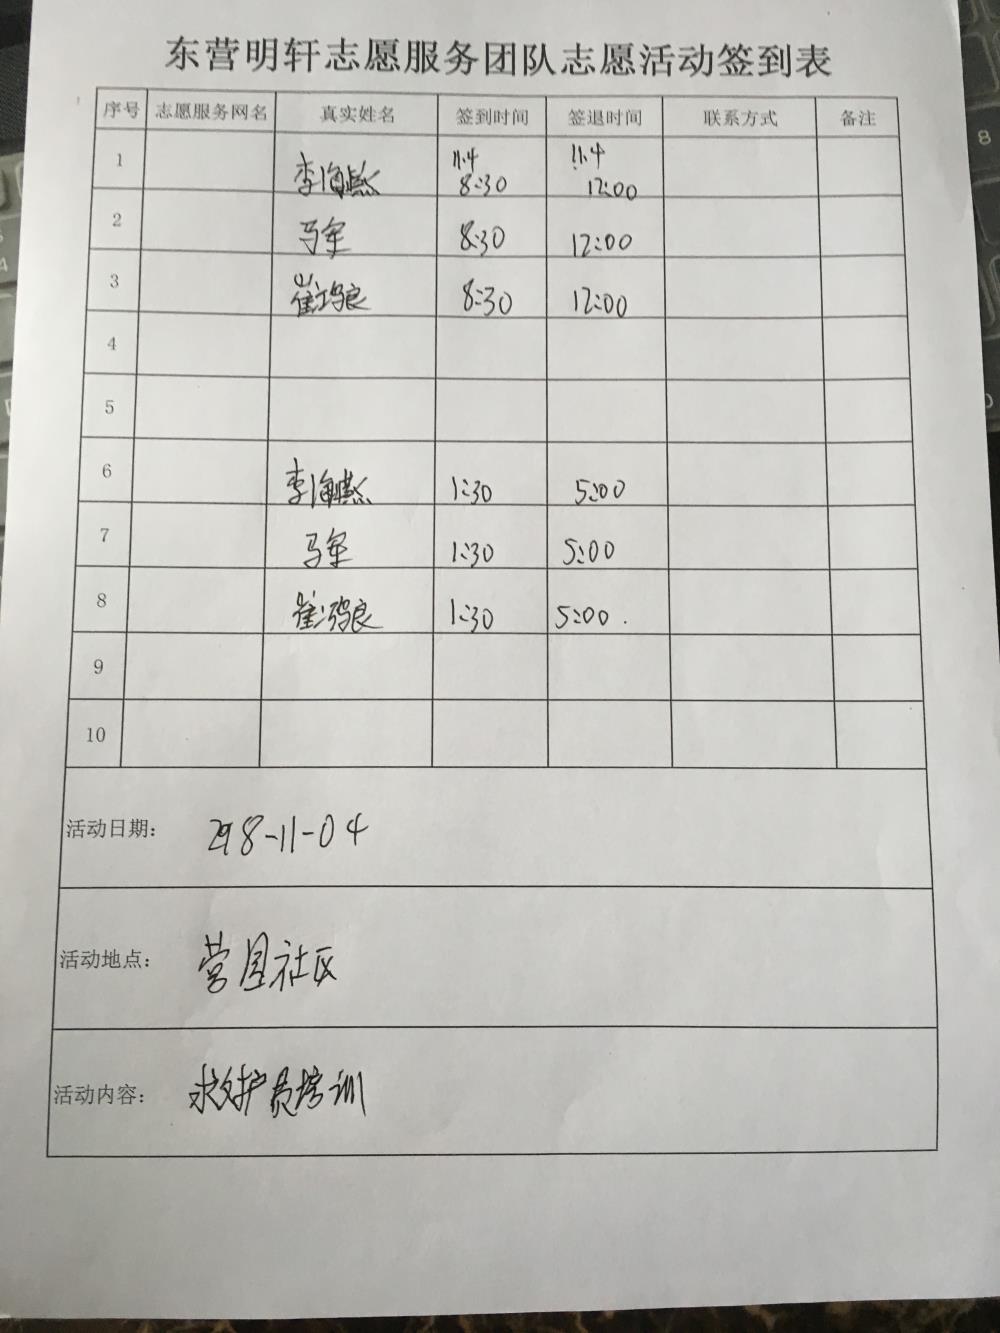 东营明轩志愿服务团队志愿活动签到表
序号 志愿服务网名 真实姓名 签到时间 签退时间 联系方式 备注
1 李海燕 11.4 8:30 11.4 12:00
2 马军 8:30 12:00
3 崔鸿良 8:30 12:00
4
5
6 李海燕 1:30 5:00
7 马军 1:30 5:00
8 崔鸿良 1:30 5:00.
9
10
活动日期: 2018-11-04
活动地点: 营园社区
活动内容: 救护员培训
8